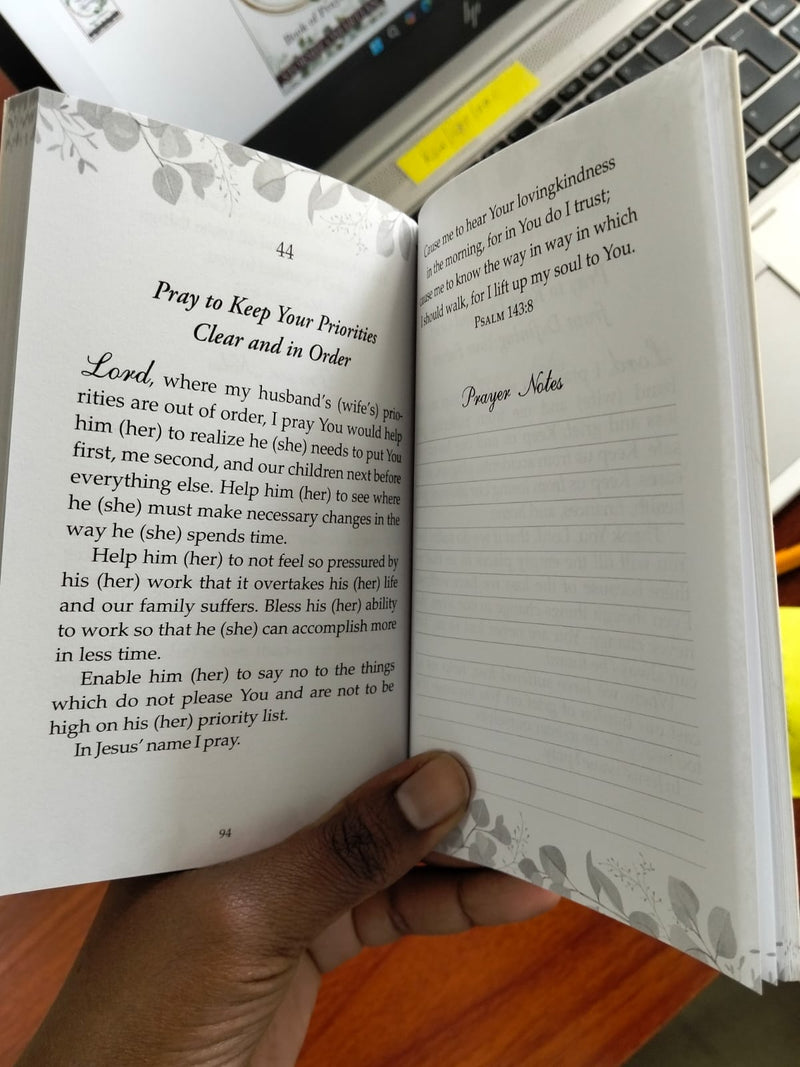 Book of Prayer
44
Pray to Keep Your Priorities
Clear and in Order
Lord, where my husband's (wife's) prio-
rities are out of order, I pray You would help
him (her) to realize he (she) needs to put You
first, me second, and our children next before
everything else. Help him (her) to see where
he (she) must make necessary changes in the
way he (she) spends time.
Help him (her) to not feel so pressured by
his (her) work that it overtakes his (her) life
and our family suffers. Bless his (her) ability
to work so that he (she) can accomplish more
in less time.
Enable him (her) to say no to the things
which do not please You and are not to be
high on his (her) priority list.
In Jesus' name I pray.
94
Cause me to hear Your lovingkindness
in the morning, for in You do I trust;
cause me to know the way in way in which
I should walk, for I lift up my soul to You.
Psalm 143:8
Prayer Notes
hp